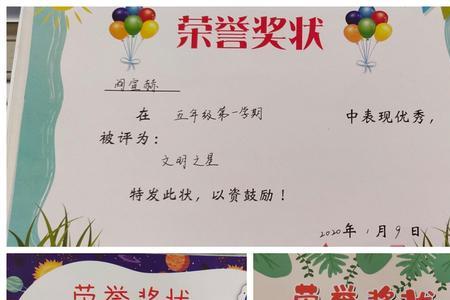 荣誉奖状
阎宣赫
在 五年级第一学期 中表现优秀，
被评为：
文明之星
特发此状，以资鼓励！
2020年 1月 9日
荣誉奖状
荣誉奖状